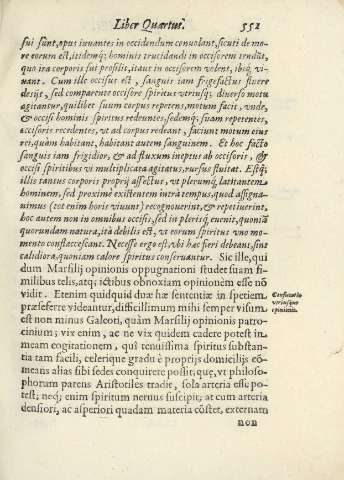 Liber Quartus. 551
sui sunt, opus iuuantes in occidendum conuolant, sicuti de mo-
re eorum est, itidemq; hominis trucidandi in occisorem tendũt,
quo ita corporis sui prosilis, itaus in occisorem volent, ibiq; vi-
uant. Cum ille occisus est, sanguis iam frigefactus fluere
desijt, sed comparente occisore spiritus vtriusq; diuerso motu
agitantur, quilibet suum corpus repetens, motum facit, vnde,
& occisi hominis spiritus redeuntes, sedemq; suam repetentes,
accisoris recedentes, vt ad corpus redeant, faciunt motum eius
rei, quàm habitant, habitant autem sanguinem. Et hoc facto
sanguis iam frigidior, & ad fluxum ineptus ab occisoris, &
occisi spiritibus vi multiplicata agitatus, rursus fluitat. Estq;
illis tantus corporis proprij affectus, vt plerumq; latitantem
hominem, sed proximè existentem intra tempus, quod assigna-
uimus (tot enim horis viuunt) recognouerint, & repetiuerint,
hoc autem non in omnibus occisis, sed in plerisq; euenit, quoniã
quorundam natura, ità debilis est, vt eorum spiritus vno mo-
mento conflaccescant. Necesse ergo est, vbi hæc fieri debeant, sint
calidiora, quoniam calore spiritus conseruantur. Sic ille, qui
dum Marsilij opinionis oppugnationi studet suam si-
milibus telis, atq; ictibus obnoxiam opinionem esse nõ
vidit. Etenim quidquid duæ hæ sententiæ in speciem
præseferre videantur, difficillimum mihi semper visum
est non minus Galeoti, quàm Marsilij opinionis patro-
cinium; vix enim, ac ne vix quidem cadere potest in
meam cogitationem, quî tenuissima spiritus substan-
tia tam facili, celerique gradu è proprijs domicilijs cõ-
means alias sibi sedes conquirere possit: quę, vt philoso-
phorum parens Aristotiles tradit, sola arteria esse po-
test; neq; enim spiritum neruus suscipit; at cum arteria
densiori, ac asperiori quadam materia cõstet, externam
Confutatio
vtriusque
opinionis.
non